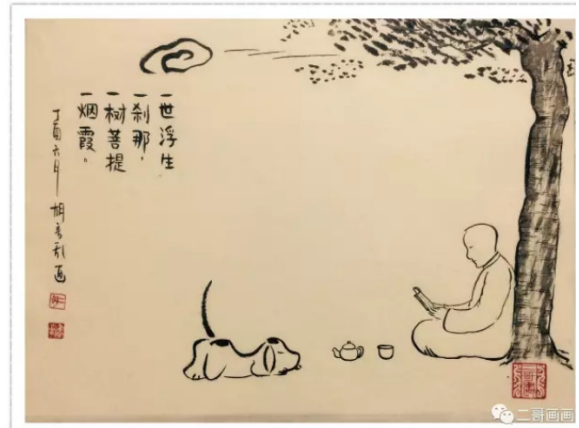 一世浮生
一刹那，
一树菩提
一烟霞。
丁酉六月
二哥画画